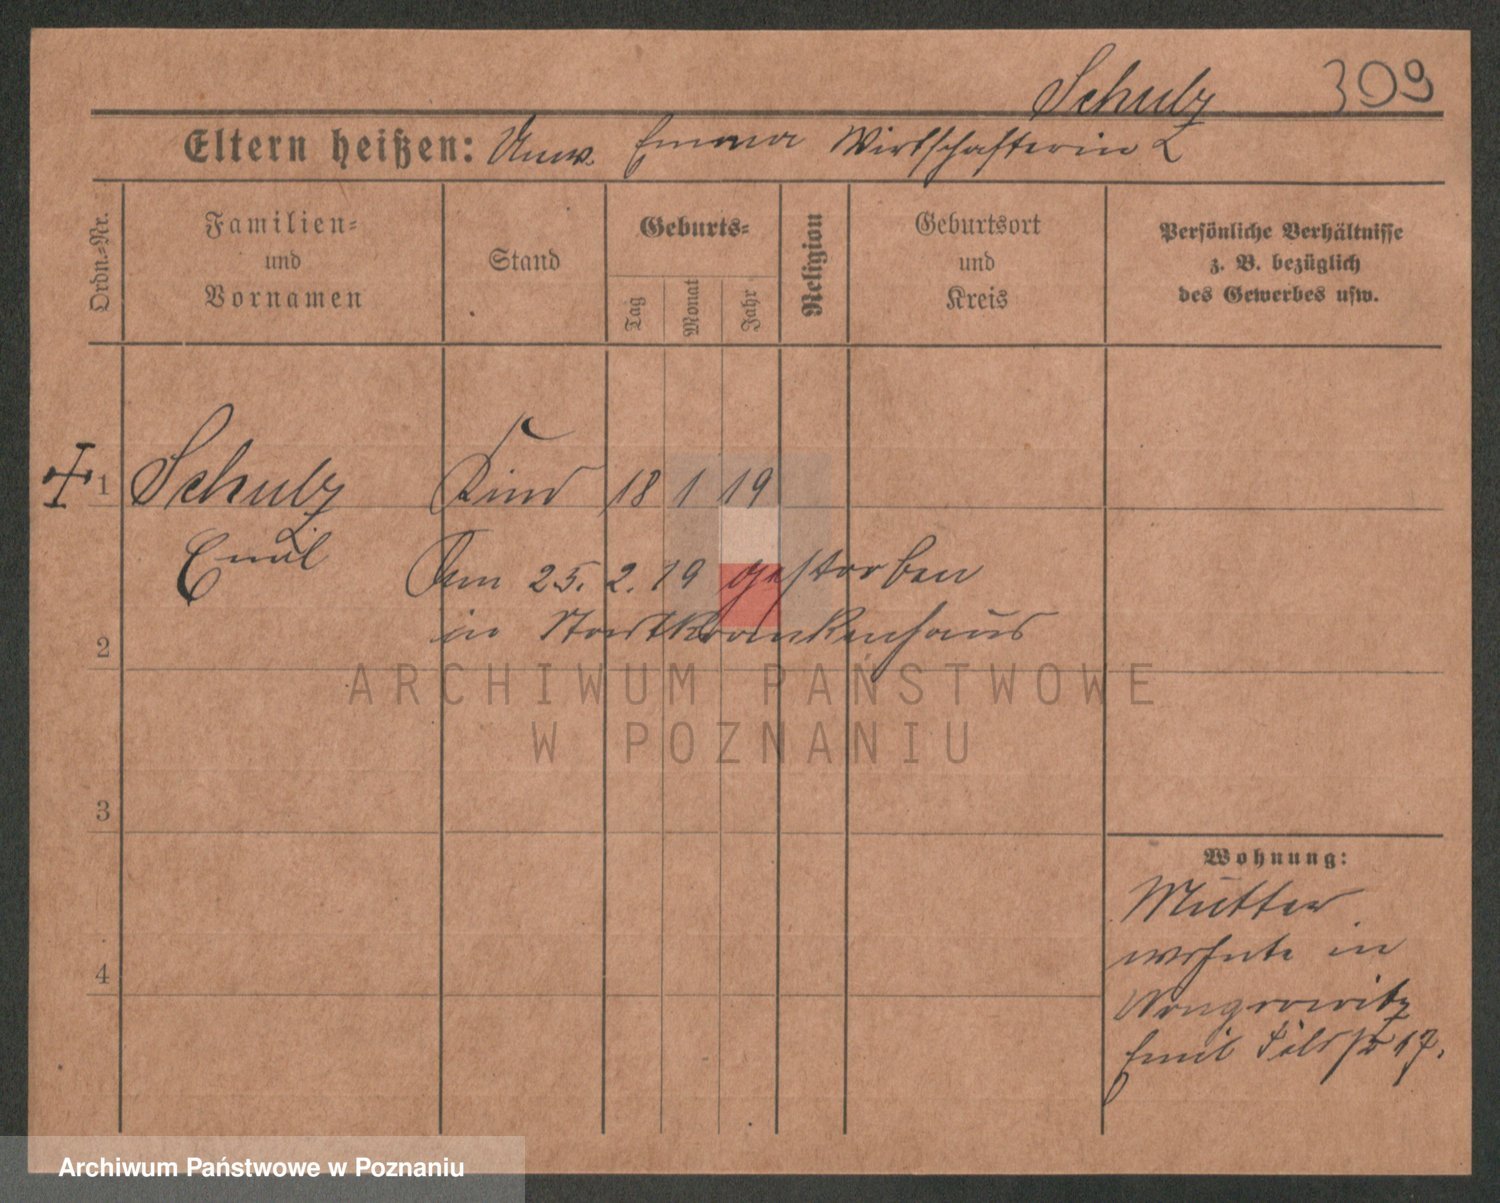 Schulz 309
Eltern heißen: Unv. Emma Wirtschafterin
Ordn.-Nr.
Familien-
und
Vornamen
Stand
Geburts-
Tag
Monat
Jahr
Religion
Geburtsort
und
Kreis
Persönliche Verhältnisse
z. B. bezüglich
des Gewerbes usw.
1 Schulz Kind 18 1 19
Emil Am 25. 2. 19 gestorben
2 in Stadtkrankenhaus
ARCHIWUM PAŃSTWOWE
W POZNANIU
3
4
Wohnung:
Mutter
wohnte in
Wongrowitz
Emil 17.
Archiwum Państwowe w Poznaniu